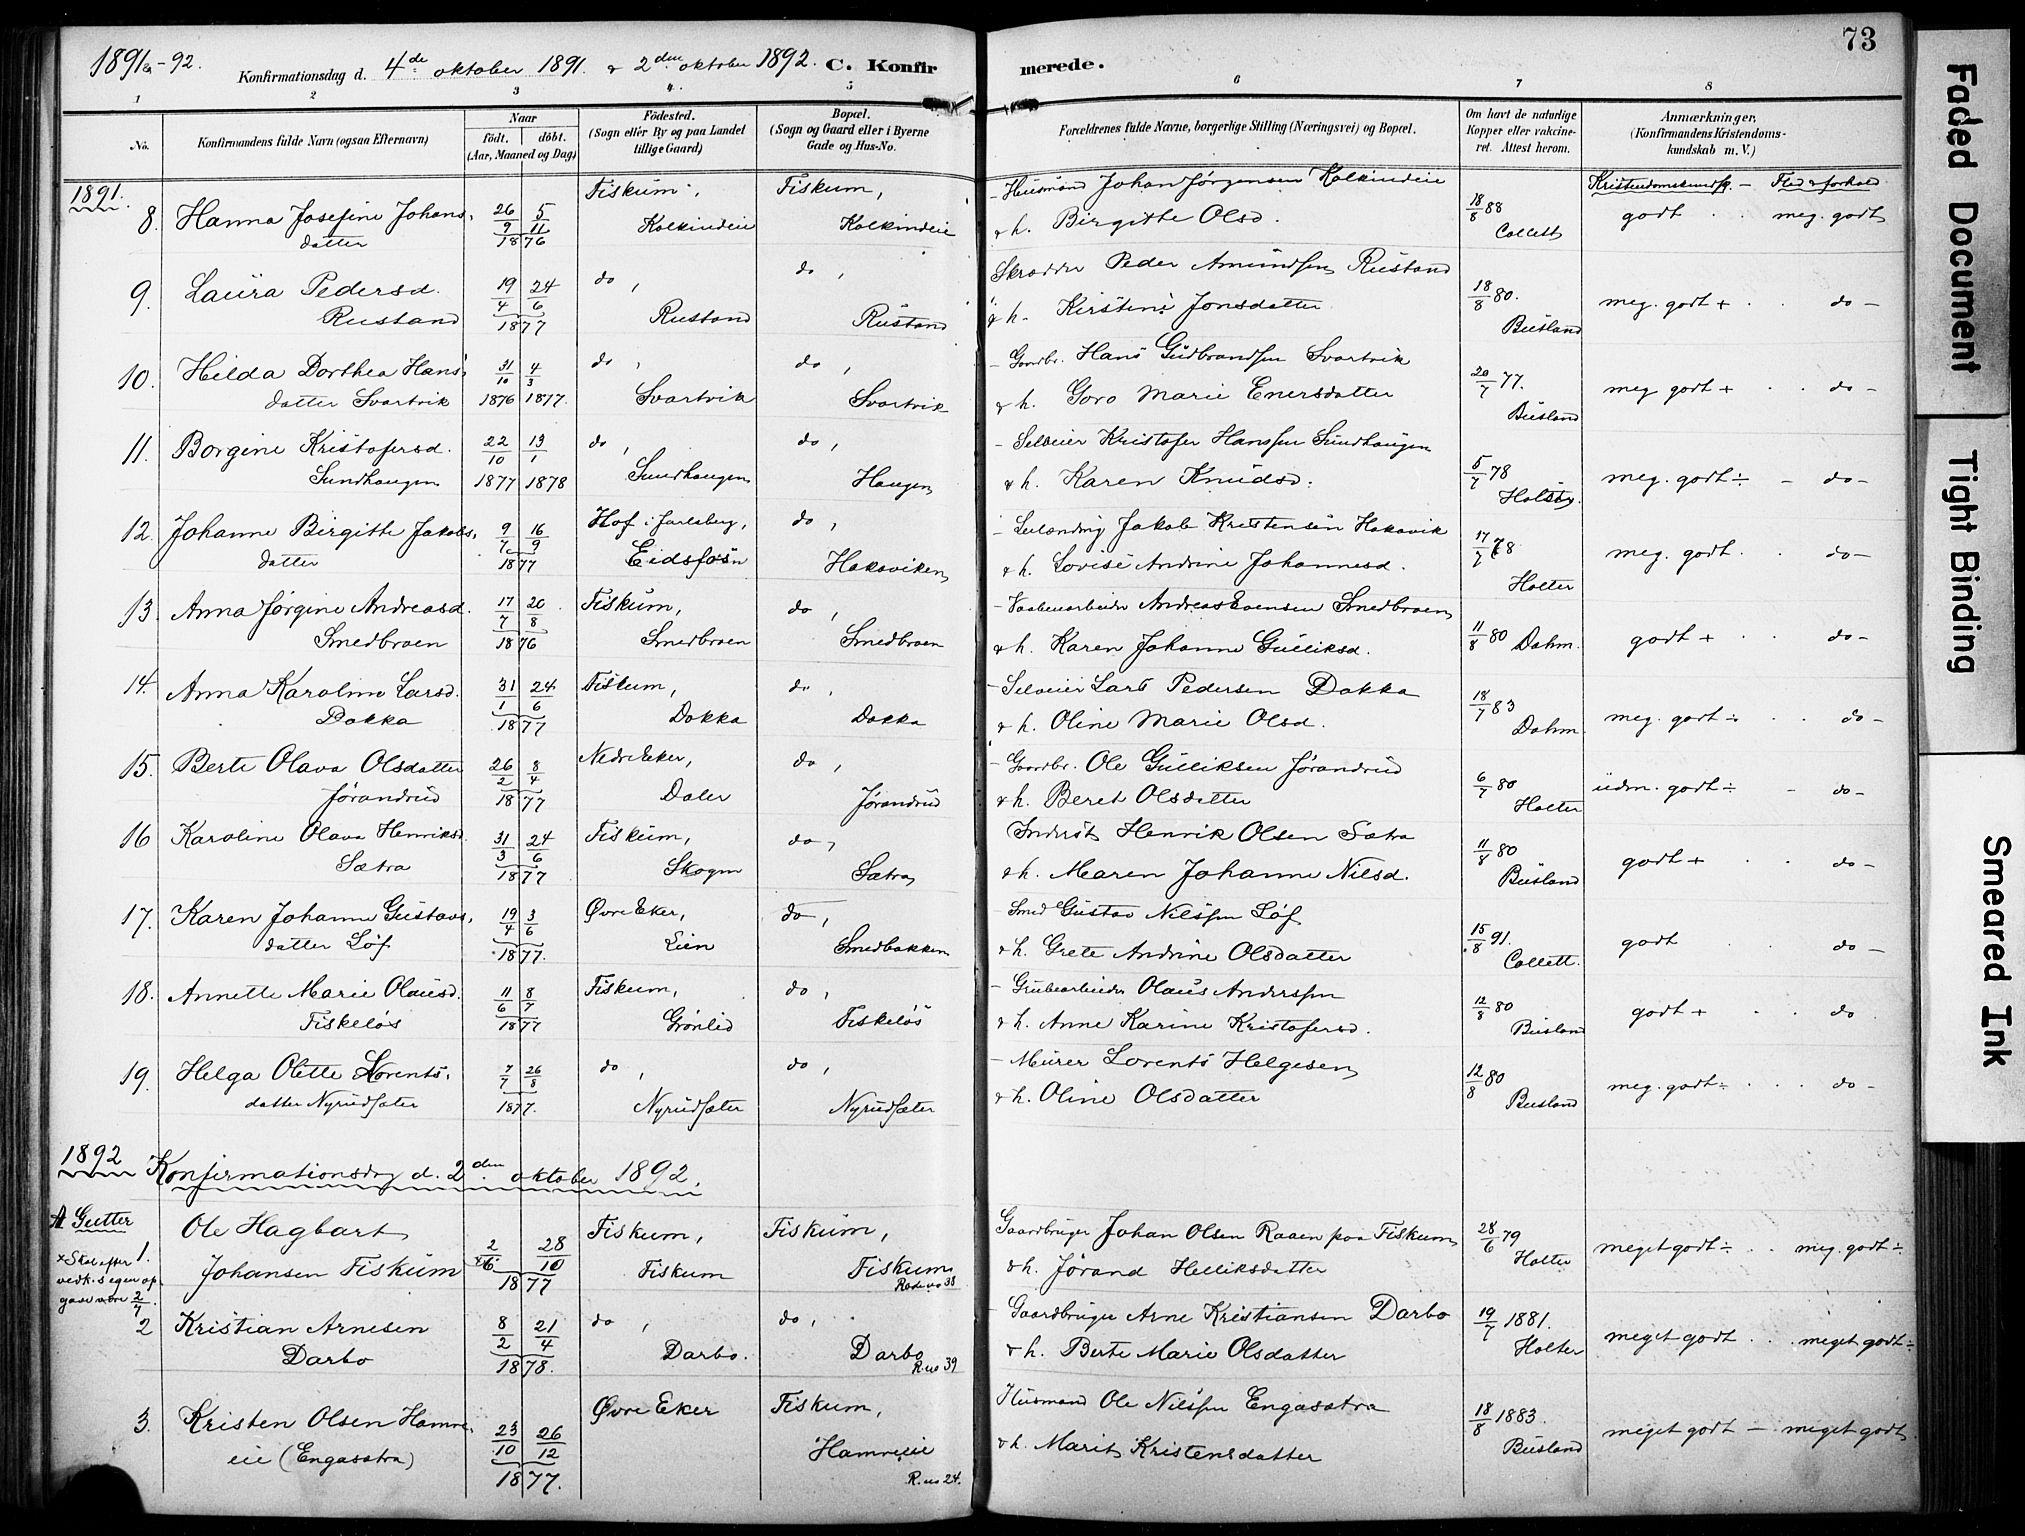 73
1891 - 92.
Konfirmationsdag d. 4de oktober 1891. & 2den oktober 1892. C. Konfirmerede.
1 2 3 4. 5 6 7 8
No. Konfirmandens fulde Navn (ogsaa Efternavn) Naar født. døbt. (Aar, Maaned og Dag) Fødested. (Sogn eller By og paa Landet tillige Gaard) Bopæl. (Sogn og Gaard eller i Byerne Gade og Hus-No. Forældrenes fulde Navne, borgerlige Stilling (Næringsvei) og Bopæl. Om havt de naturlige Kopper eller vakcineret. Attest herom. Anmærkninger, (Konfirmandens Kristendomskundskab m. V.)
1891. Fiskum, Fiskum, Husmand Johan Jørgensen Kolkinneie Kristendomskundsk. - Flid & forhold
8. Hanna Josefine Johans- 26/9 5/11 Kolkinneie Kolkinneie & h. Birgitte Olsd. 18/8 88 godt meg. godt
datter 1876 Collett
do, do, Skrædder Peder Amundsen Rustand
9. Laura Pedersd. 19/4 24/6 & h. Kirstine Jonsdatter 18/8 80. meg. godt + do -
Rustand 1877 Rustand Rustand Busland
do, do, - Gaardbr. Hans Gudbrandsen Svartvik
10. Hilda Dorthea Hans- 31/10 4/3 & h. Goro Marie Enersdatter 20/7 77. meg godt + do -
datter Svartvik 1876 1877. Svartvik Svartvik Busland
11. Borgine Kristofersd. 22/10 13/1 do, do, - Selveier Kristofer Hanssen Sundhaugen
Sundhaugen 1877 1878 Sundhaugen Haugen & h. Karen Knudsd. 5/7 78 meg. godt ÷ - do -
12. Johanne Birgitte Jakobs- 9/7 16/9 Hof i Jarlsberg, do, Jakob Kristensen Hakavik 17/7 78
datter 1877 Eidsfosn Hakaviken & h. Lovise Andrine Johannesd. Holter meg. godt do -
13. Anna Jørgine Andreasd. 17/7 20/8 Fiskum, do, - Vaabenarbeider Andreas Evensen Smedbraaen
Smedbroen 1876 Smedbroen Smedbroen & h. Karen Johanne Gulliksd. 11/8 80 Dahm. godt + do -
14. Anna Karoline Larsd. 31/1 24/6 Fiskum, do, - Selveier Lars Pedersen Dokka 18/7 83
Dokka 1877 Dokka Dokka & h. Oline Marie Olsd. Dahm meg. godt ÷ do -
15. Berte Olava Olsdatter 26/2 8/4 Nedre Eker, do, - Gaardbr. Ole Gulliksen Jørandrud 6/7 80
Jørandrud 1877 Daler Jørandrud & h. Beret Olsdatter Holter udm. godt ÷ - do -
16 Karoline Olava Henriksd. 31/3 24/6 Fiskum, do, Inderst Henrik Olsen Sætra 11/8 80
Sætra 1877 Skogen Sætra & h. Maren Johanne Nilsd. Busland godt + do -
17. Karen Johanne Gustavs- 19/4 3/6 Øvre Eker, do, Smed Gustav Nilssen Løf 15/8 91.
datter Løf 1877. Lien Smedbakken & h. Grete Andrine Olsdatter Collett. godt do -
18. Annette Marie Olausd. 11/6 8/7 Fiskum, do, - Grubearbeider Olaus Anderssen 12/8 80
Fiskeløs 1877 Grønlid Fiskeløs & h. Anne Karine Kristofersd. Busland godt + do
19. Helga Olette Lorents- 7/7 26/8 do, do, - Murer Lorents Helgesen 12/8 80
datter Nyrudsæter 1877. Nyrudsæter Nyrudsæter & h. Oline Olsdatter Busland meg. godt ÷ do -
1892 Konfirmationsdag d. 2den oktober 1892.
A Gutter
1. Ole Hagbart 2/6 28/10 Fiskum, Fiskum, Gaardbruger Johan Olsen Raaen paa Fiskum 28/6 79
Johansen Fiskum 1877 Fiskum Fiskum Rode no 38 & h. Jørand Helliksdatter Holter meget godt ÷ meg. godt ÷
x Skal efter vedk.s egen opgave være 2/7.
2 Kristian Arnesen 8/2 21/4 do, do, - Gaardbruger Arne Kristiansen Darbo 19/7 1881.
Darbo 1878. Darbo. Darbo R. no 39 & h. Berte Marie Olsdatter Holter meget godt meget godt ÷
3. Kristen Olsen Hamre- 23/10 26/12 Øvre Eker Fiskum, Husmand Ole Nilssen Engasætra 18/8 1883.
eie (Engasætra) 1877. Hamreeie R. no 24. & h. Marit Kristensdatter Busland meget godt - meget godt
Faded Document
Tight Binding
Smeared Ink